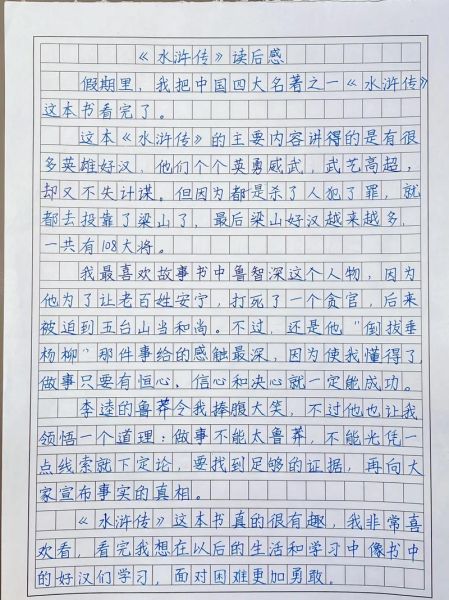 《水浒传》读后感
假期里，我把中国四大名著之一《水浒传》
这本书看完了。
这本《水浒传》的主要内容讲得的是有很
多英雄好汉，他们个个英勇威武，武艺高超，
却又不失计谋。但因为都是杀了人犯了罪，就
都去投靠了梁山了，最后梁山好汉越来越多，
一共有108大将。
我最喜欢故事书中鲁智深这个人物，因为
他为了让老百姓安宁，打死了一个贪官，后来
被迫到五台山当和尚。不过，还是他“倒拔垂
杨柳”那件事给的感触最深，因为使我懂得了
做事只要有恒心、信心和决心就一定能成功。
李逵的鲁莽令我捧腹大笑，不过他也让我
领悟一个道理：做事不能太鲁莽，不能光凭一
点线索就下定论，要找到足够的证据，再向大
家宣布事实的真相。
《水浒传》这本书真的很有趣，我非常喜
欢看，看完我想在以后的生活和学习中像书中
的好汉们学习，面对困难更加勇敢。